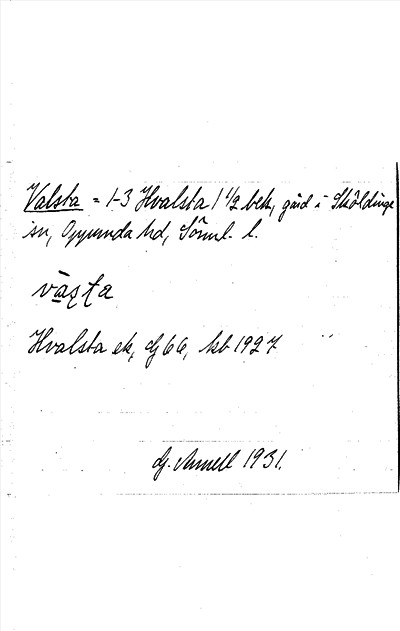 Valsta = 1-3 Hvalsta 1 1/2 bek, gård i Sköldinge
sn, Oppunda hd, Söml. l.
Hvalsta ek, dj 66, kb 1927
G. Annell 1931.